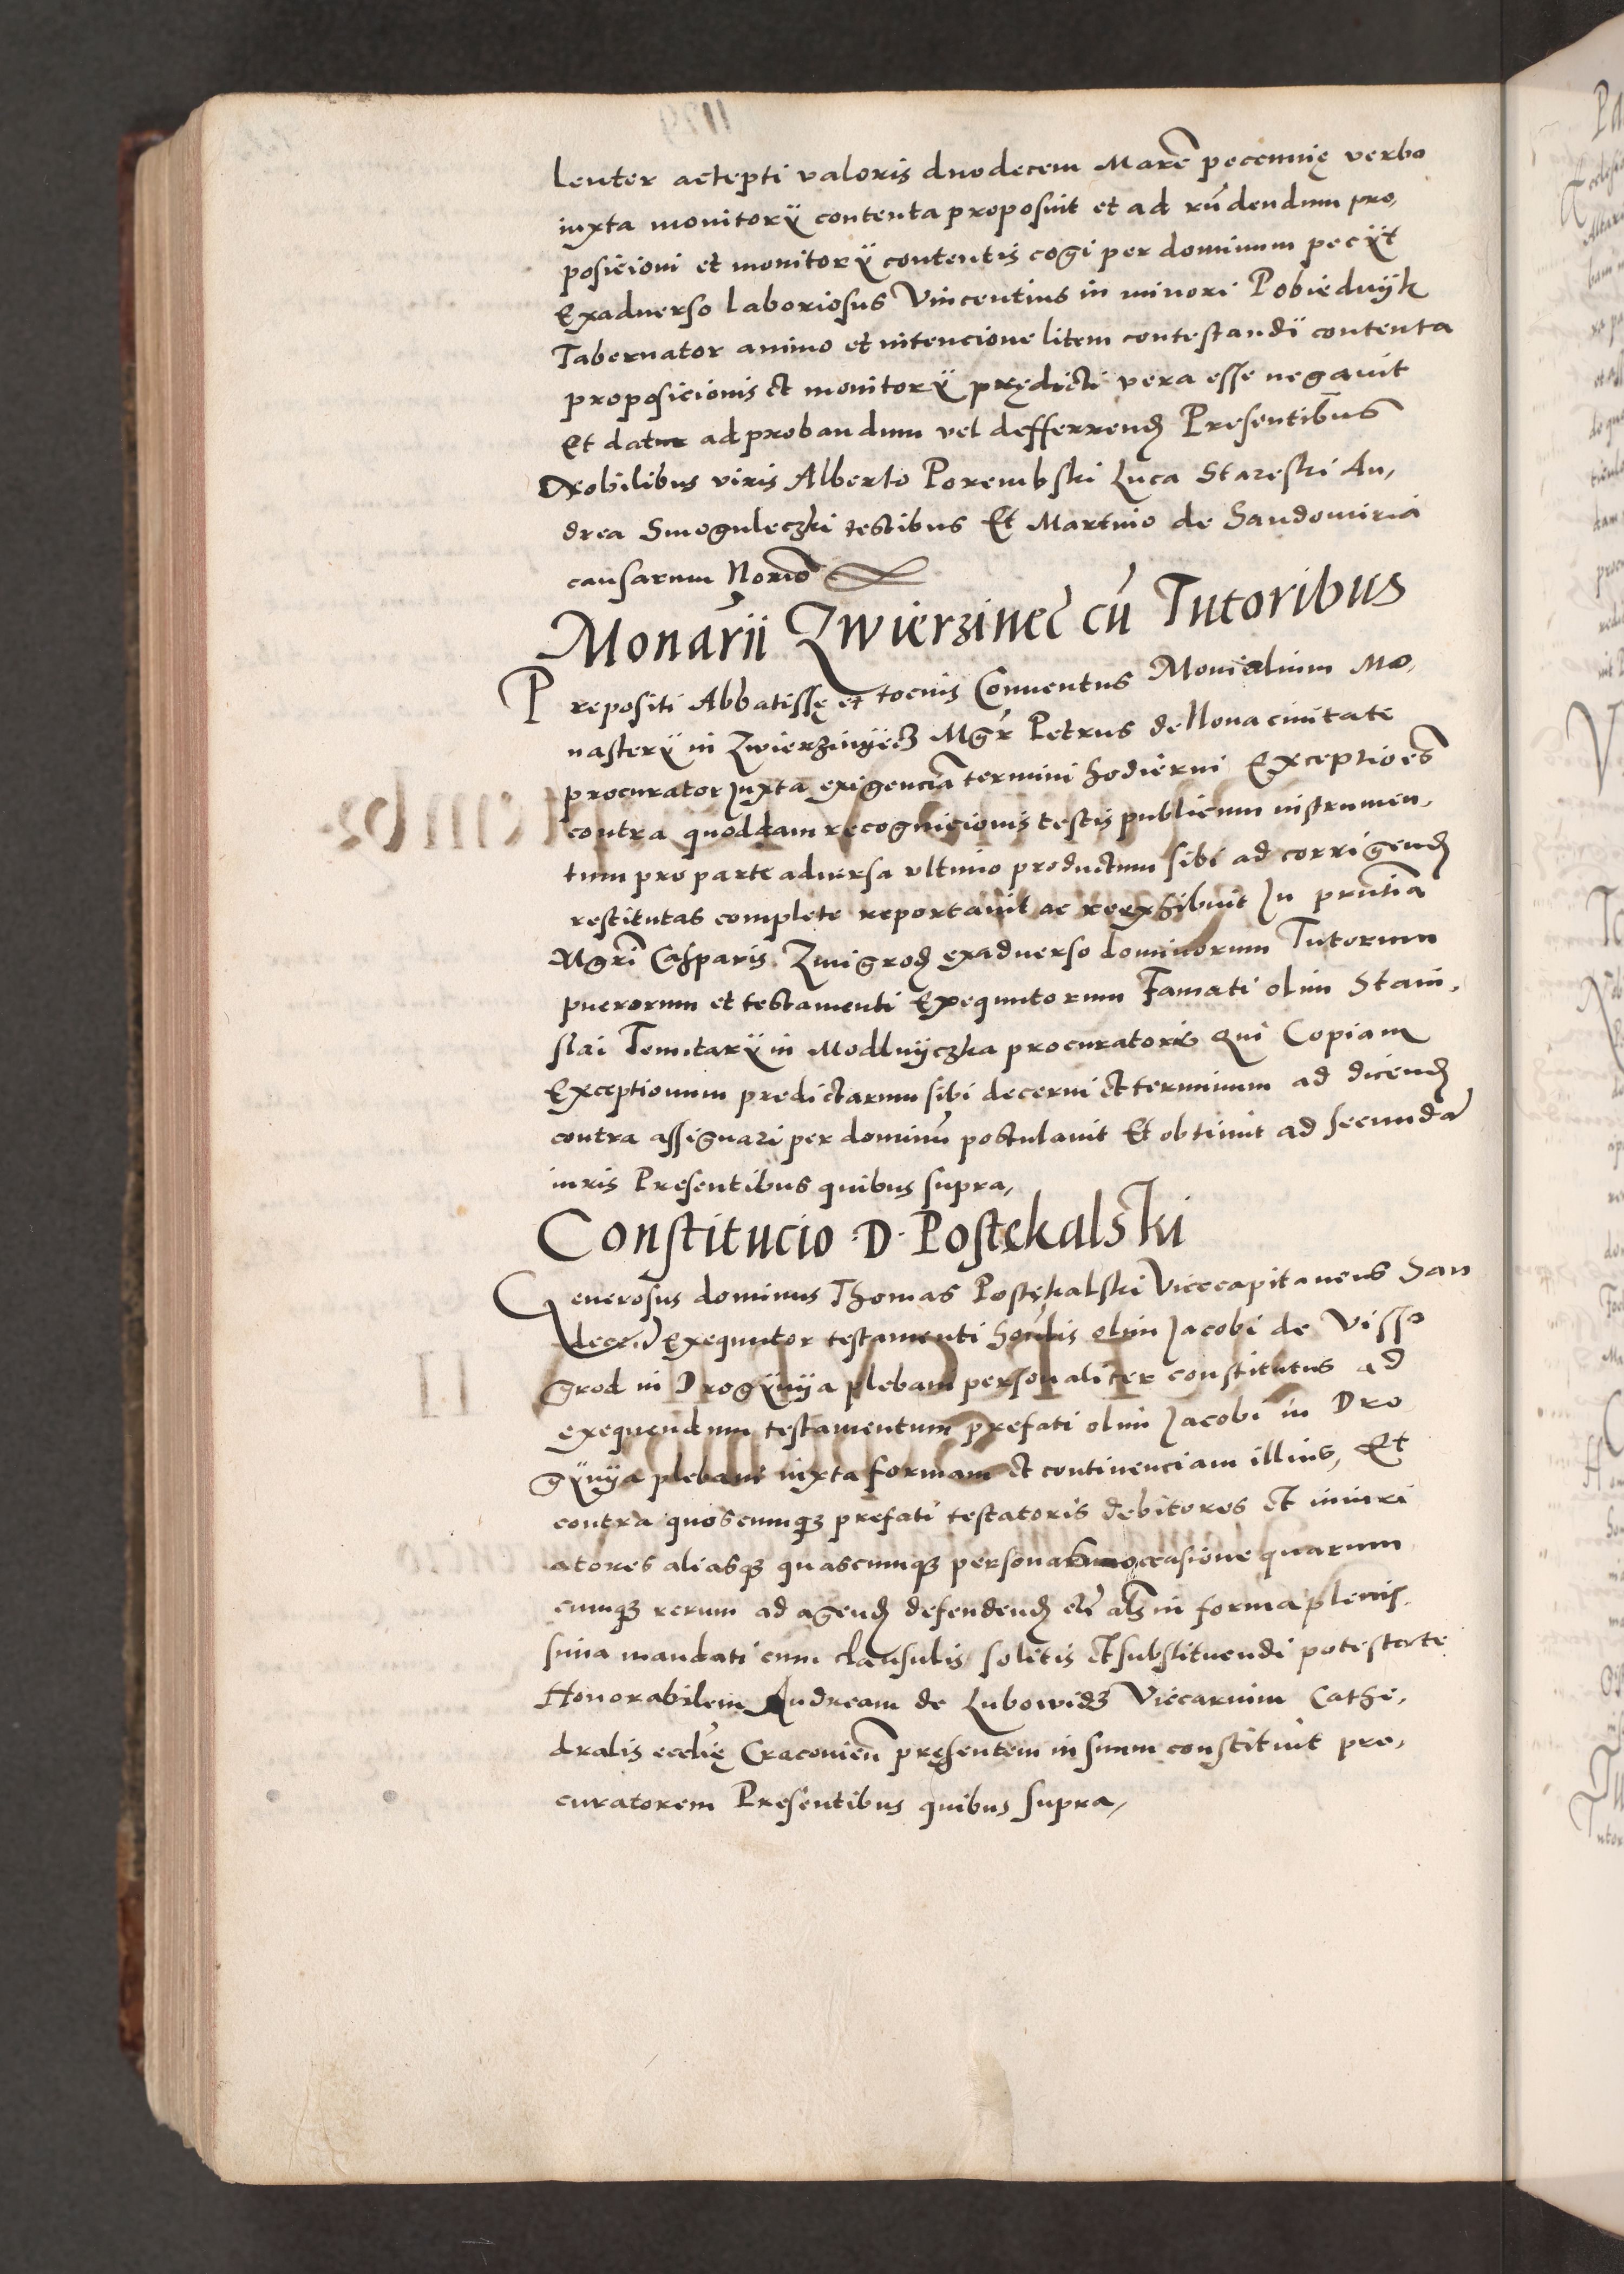 lenter accepti valoris duodecem Marc̄ pecunię verbo
iuxta monitorÿ contenta proposuit et ad rn̄dendum pro,
posicioni et monitorÿ contentis cogi per dominum pecÿt
Exaduerso laboriosus Vincentius in minori Pobiednÿk
Tabernator animo et intencione litem contestandi contenta
proposicionis et monitorÿ prędicti vera esse negauit
Et datur ad probandum vel defferrend Presentibus
Nobilibus viris Alberto Porembski Luca Stareski An,
drea Smoguleczki testibus Et Martino de Sandomiria
causarum Norio
Monarii Zwierzinec cū Tutoribus
Prepositi Abbatissę et tocius Conuentus Monialium Mo,
nasterÿ in Zwierzinÿecz Mgr̄ Petrus de Noua ciuitate
procurator Juxta exigenciā termini hodierni Exceptioēs
contra quoddam recognicionis testis publicum instrumen,
tum pro parte aduersa vltimo productum sibi ad corrigend
restitutas complete reportauit ac reexhibuit In prn̄tia
Mgri Casparis Zmigrod exaduerso dominorum Tutorum
puerorum et testamenti Exequutorum Famati olim Stani,
slai Temtarÿ in Modlnÿczka procuratoris Qui Copiam
Exceptionum predictarum sibi decerni et terminum ad dicend
contra assignari per dominū postulauit Et obtinuit ad secundā
iuris Presentibus quibus supra,
Constitucio .D. Postękalski
Generosus dominus Thomas Postękalski Vicecapitaneus San
decen̄ Exequutor testamenti hon̄lis olim Jacobi de Visso
grod in Drogÿnÿa plebani personaliter constitutus ad
exequendum testamentum prefati olim Jacobi in Dro
gÿnÿa plebani iuxta formam et continenciam illius, Et
contra quoscumqȝ prefati testatoris debitores et iniuri
atores aliasqȝ quascumqȝ personas occasione quarum
cumqȝ rerum ad agend defendend etc̄ als̄ in forma plenis,
sima mandati cum clausulis solitis et substituendi potestate
Honorabilem Andream de Lubowidz Viccarium Cathe,
dralis ecclīę Cracouien̄ pręsentem in suum constituit pro,
curatorem Presentibus quibus supra,